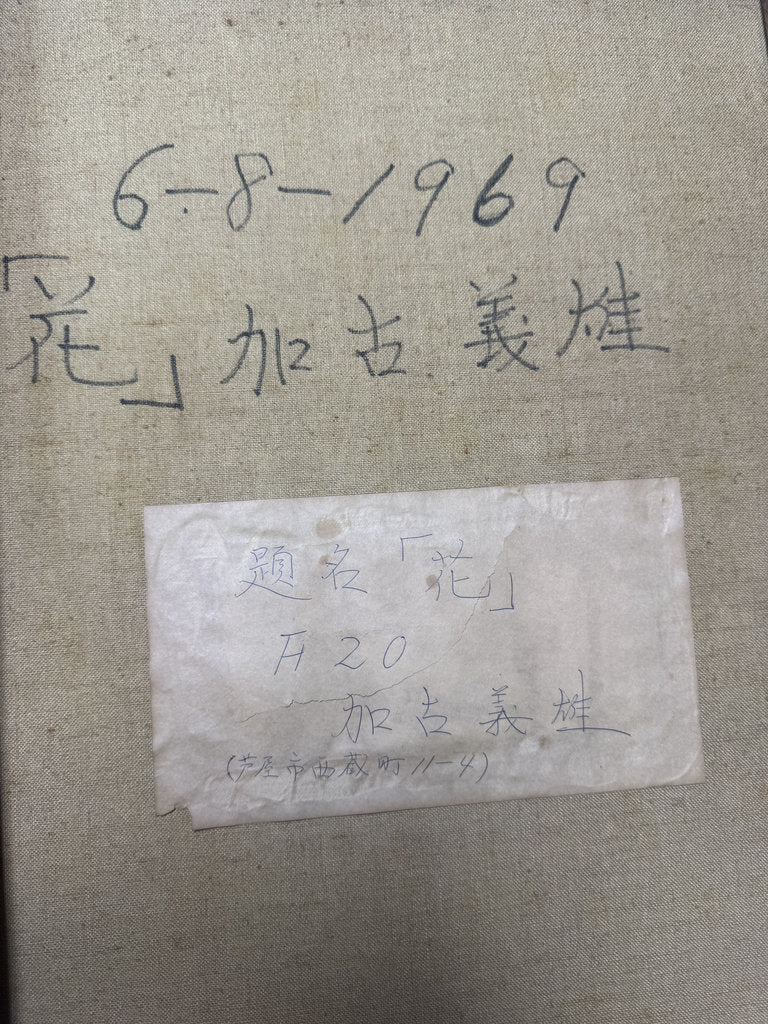 6-8-1969
「花」加古義雄
題名「花」
F20
加古義雄
(芦屋市西蔵町11-4)